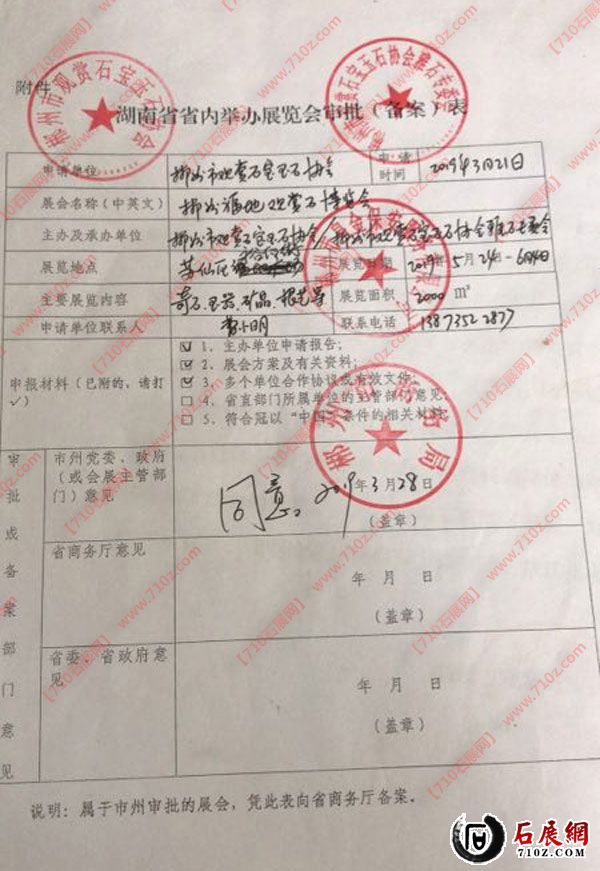 附件
湖南省省内举办展览会审批（备案）表
郴州市观赏石宝玉石协会
郴州市观赏石宝玉石协会雅石专委会
申请单位 郴州市观赏石宝玉石协会 申请时间 2019年3月21日
展会名称（中英文） 郴州福地观赏石博览会
主办及承办单位 郴州市观赏石宝玉石协会 郴州市观赏石宝玉石协会雅石专委会
展览地点 苏仙区 展览日期 2019年5月24-6月4日
主要展览内容 奇石.玉器.矿晶.根艺等 展览面积 2000 m³
申请单位联系人 联系电话 13873522877
申报材料（已附的，请打✓）
☑ 1、主办单位申请报告；
☑ 2、展会方案及有关资料；
☑ 3、多个单位合作协议或有效文件；
☐ 4、省直部门所属单位的主管部门意见；
☐ 5、符合冠以“中国”条件的相关材料。
郴州市商务局
审批或备案部门意见
市州党委、政府（或会展主管部门）意见
同意。2019年3月28日
（盖章）
省商务厅意见
年 月 日
（盖章）
省委、省政府意见
年 月 日
（盖章）
说明：属于市州审批的展会，凭此表向省商务厅备案.
【710石展网】www.710z.com
石展網
710Z.COM